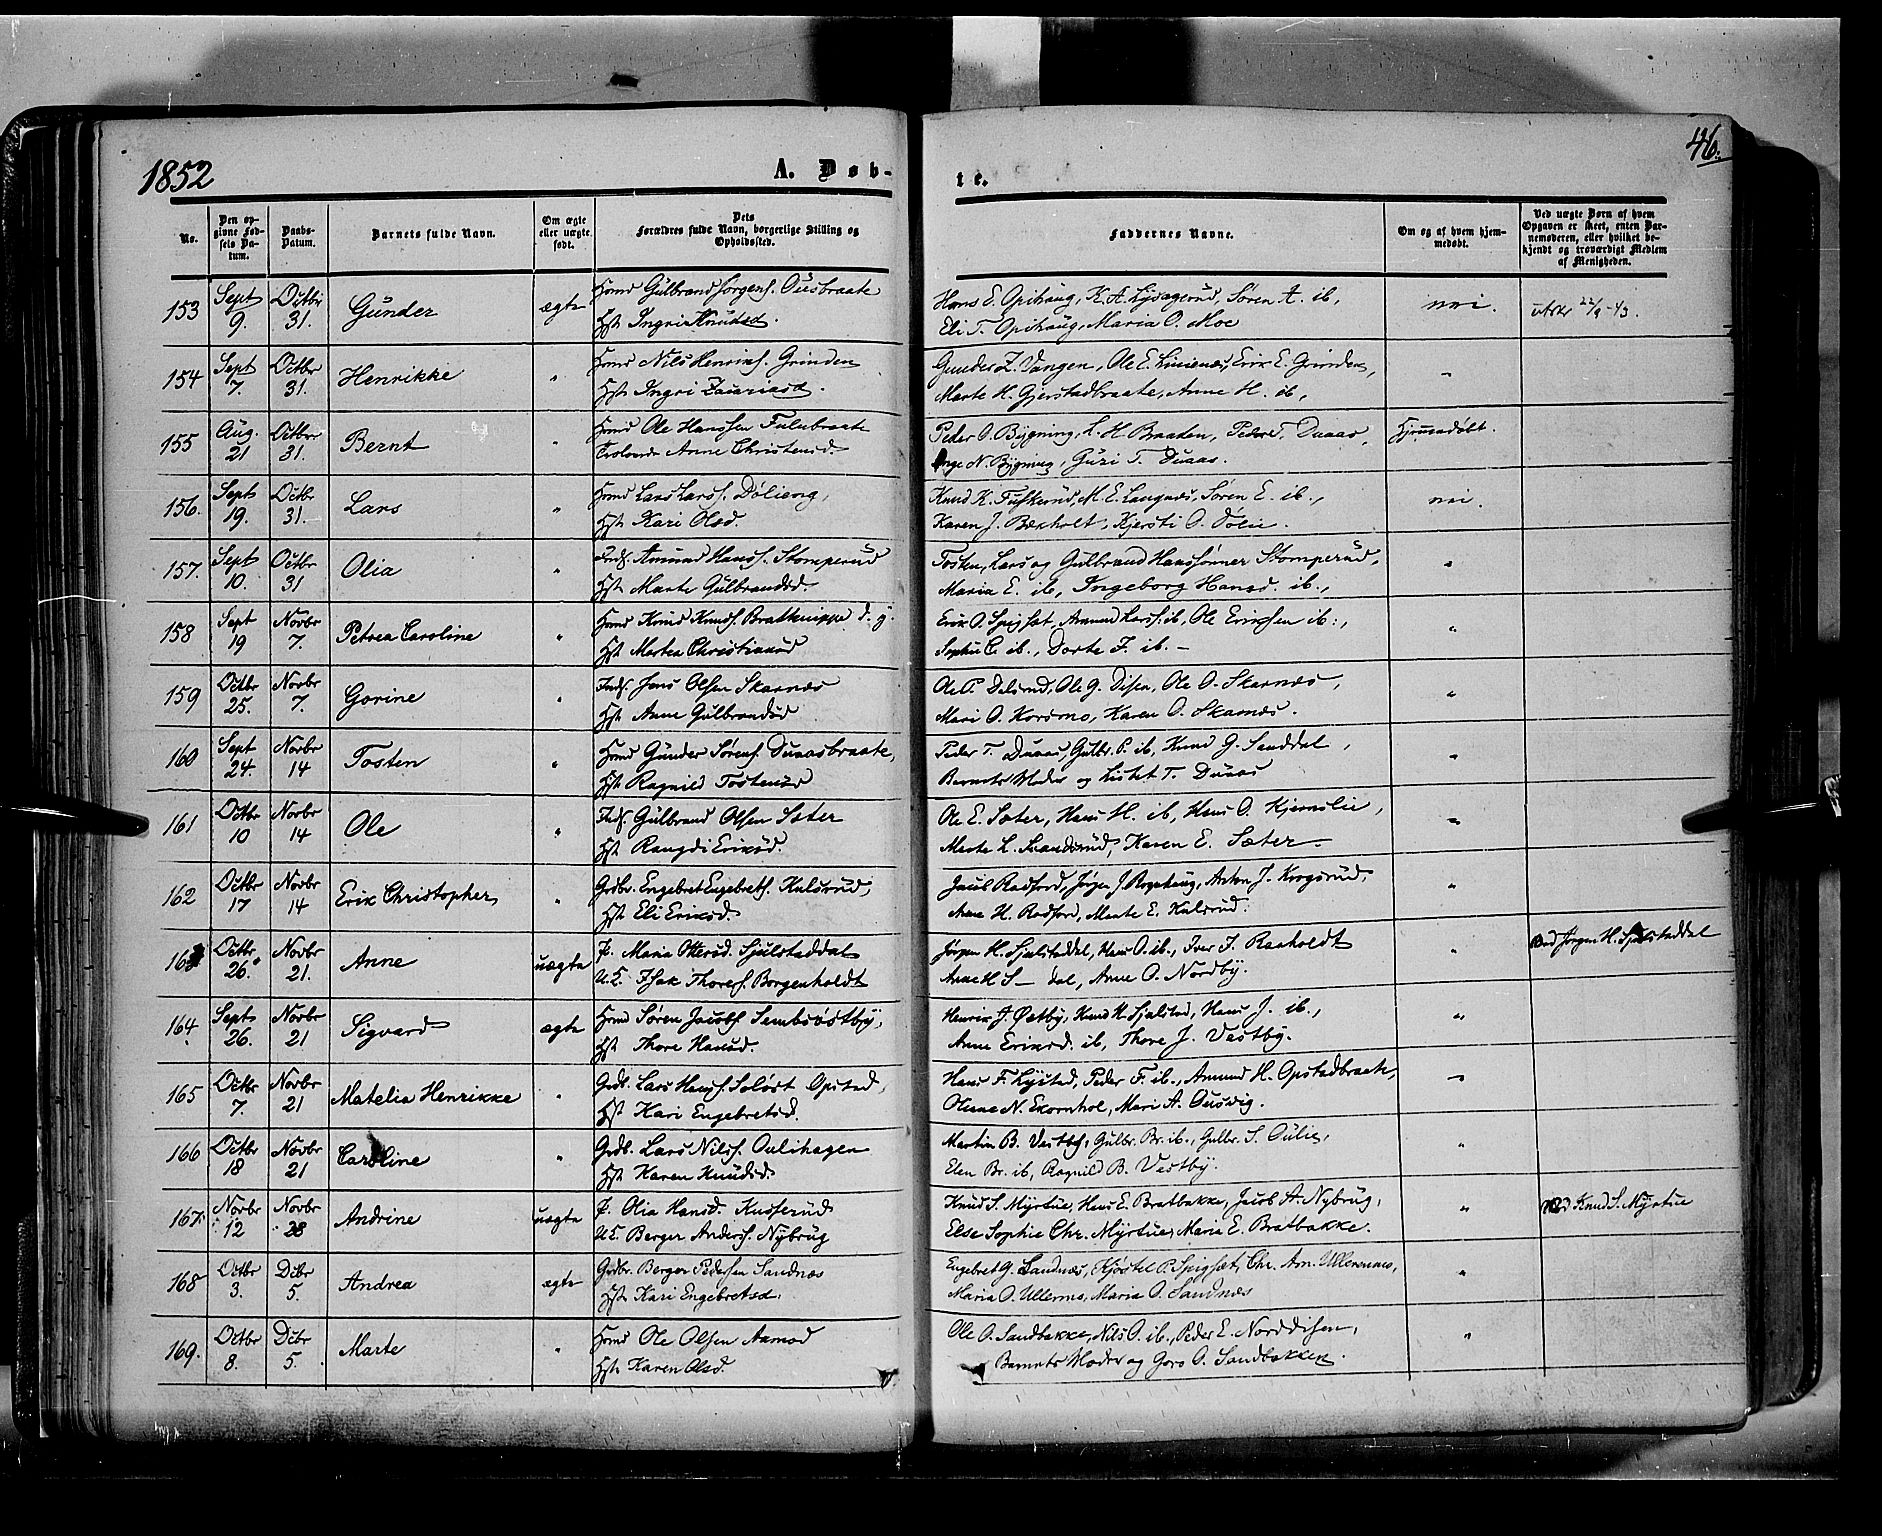 1852
A. Døb-
te.
46.
No.
Den opgivne Fødsels Datum.
Daabs-Datum.
Barnets fulde Navn.
Om ægte eller uægte født.
Dets Forældres fulde Navn, borgerlige Stilling og Opholdssted.
Faddernes Navne.
Om og af hvem hjemmedøbt.
Ved uægte Børn af hvem Opgaven er skeet, enten Barnemoderen, eller hvilket bekjendt og troværdigt Medlem af Menigheden.
153 Sept 9. Octbr 31. Gunder ægte Hmd Gulbrand Jørgens. Ousbraate
Hst. Ingri Knudsd.
Hans E. Opihaug, K. A. Lysagerud, Søren A. ib,
Eli T. Opihaug, Maria O. Moe
nei. 22/9-43.
154 Sept 7. Octbr 31. Henrikke " Hmd Nils Henriks. Grinden
Hst. Ingri Zacariasd.
Gunder Z. Vangen, Ole E. Linenæs, Erik E. Grinden,
Marte H. Gjerstadbraate, Anne H. ib,
"
155 Aug. 21 Octbr 31. Bernt Hmd Ole Hanssen Fulubraate
Anne Christensd.
Peder O. Bygning, L. H. Braaten, Peder T. Duaas,
Inge N. Bygning, Guri T. Duaas.
Hjemmedøbt.
156. Sept 19. Octbr 31. Lars " Hmd Lars Lars. Dølieng,
Hst. Kari Olsd.
Knud K. Fuskerud, M. E. Langnæs, Søren E. ib.,
Karen J. Bækholt, Kjersti O. Dølie.
nei.
157. Sept 10. Octbr 31 Olia " Inds. Amund Hans. Stomperud
Hst. Marte Gulbrandsd.
Tosten, Lars og Gulbrand Hanssønner Stomperud,
Maria E. ib, Ingeborg Hansd. ib.,
"
158 Sept 19 Novbr 7. Petrea Caroline " Hmd Knud Knuds. Bratknippe d. y.
Hst. Martea Christiansd
Erik O. Spigset, Amund Lars. ib, Ole Eriksen ib.,
Sophie C. ib., Dorte J. ib. -
"
159 Octbr 25. Novbr 7. Gorine " Inds. Jens Olsen Skarnæs
Hst. Anne Gulbrandsd
Ole P. Dalsrud, Ole G. Disen, Ole O. Skarnæs,
Mari O. Korsmo, Karen O. Skarnæs.
"
160 Sept 24. Novbr 14 Tosten " Hmd Gunder Sørens. Duaasbraate,
Hst. Ragnild Tostensd
Peder T. Duaas, Gulbr. P. ib, Knud G. Sanddal,
Barnets Moder og Lisbet T. Duaas
"
161 Octbr 10 Novbr 14 Ole " Inds. Gulbrand Olsen Sæter
Hst. Rangdi Eriksd.
Ole E. Sæter, Hans H. ib, Hans O. Kjernslie,
Marte L. Svandsrud, Karen E. Sæter.
"
162 Octbr 17 Novbr 14 Erik Christopher " Grdbr. Engebret Engebrets. Kulsrud,
Hst. Eli Eriksd.
Jacob Radford, Jørgen J. Rognhaug, Anton J. Krogsrud,
Anne H. Radford, Marte E. Kulsrud.
"
163 Octbr 26. Novbr 21. Anne uægte P. Maria Ottersd. Sjulstaddal
U.C. Isak Thores. Borgenholdt
Jørgen H. Sjulstaddal, Hans O. ib., Iver J. Raaholdt
Anne H. S— dal, Anne O. Nordby.
" ved Jørgen H. Sjulstaddal
164. Sept 26. Novbr 21 Sigvard ægte Hmd Søren Jacobs. Sembsvestby,
Hst. Thore Hansd.
Henrik J. Østby, Knud H. Sjulstad, Hans J. ib.,
Anne Eriksd. ib, Thore J. Vestby.
"
165 Octbr 7. Novbr 21 Matelia Henrikke " Grdb. Lars Hans. Soløst Opstad,
Hst. Kari Engebretsd.
Hans F. Lystad, Peder F. ib., Amund H. Opstadbraate,
Oliane N. Ekornhol, Mari A. Ousvig.
"
166 Octbr 18 Novbr 21 Caroline " Grdb. Lars Nils. Oulihagen
Hst. Karen Knudsd.
Martin B. Vestby, Gulbr. Br. ib., Gulbr. S. Oulie,
Elen Br. ib, Ragnild B. Vestby.
"
167. Novbr 12 Novbr 28 Andrine uægte P. Olia Hansd. Kusserud
U.C. Berger Anders. Nybrug
Knud S. Myrtue, Hans E. Bratbakke, Jacob A. Nybrug,
Else Sophie Chr. Myrtue, Marie E. Bratbakke.
" ved Knud S. Myrtue
168 Octbr 3. Dcbr 5. Andrea ægte Grdbr. Berger Pedersen Sandnæs
Hst. Kari Engebretsd.
Engebret G. Sandnæs, Kjøstel P. Spigsæt, Chr. Am. Ullernmo,
Maria O. Ullermo, Maria O. Sandnæs
"
169. Octbr 8. Dcbr 5. Marte " Hmd Ole Olsen Aamod
Hst. Karen Olsd.
Ole O. Sandbakke, Nils O. ib., Peder E. Norddisen,
Barnets Moder og Goro O. Sandbakken.
"